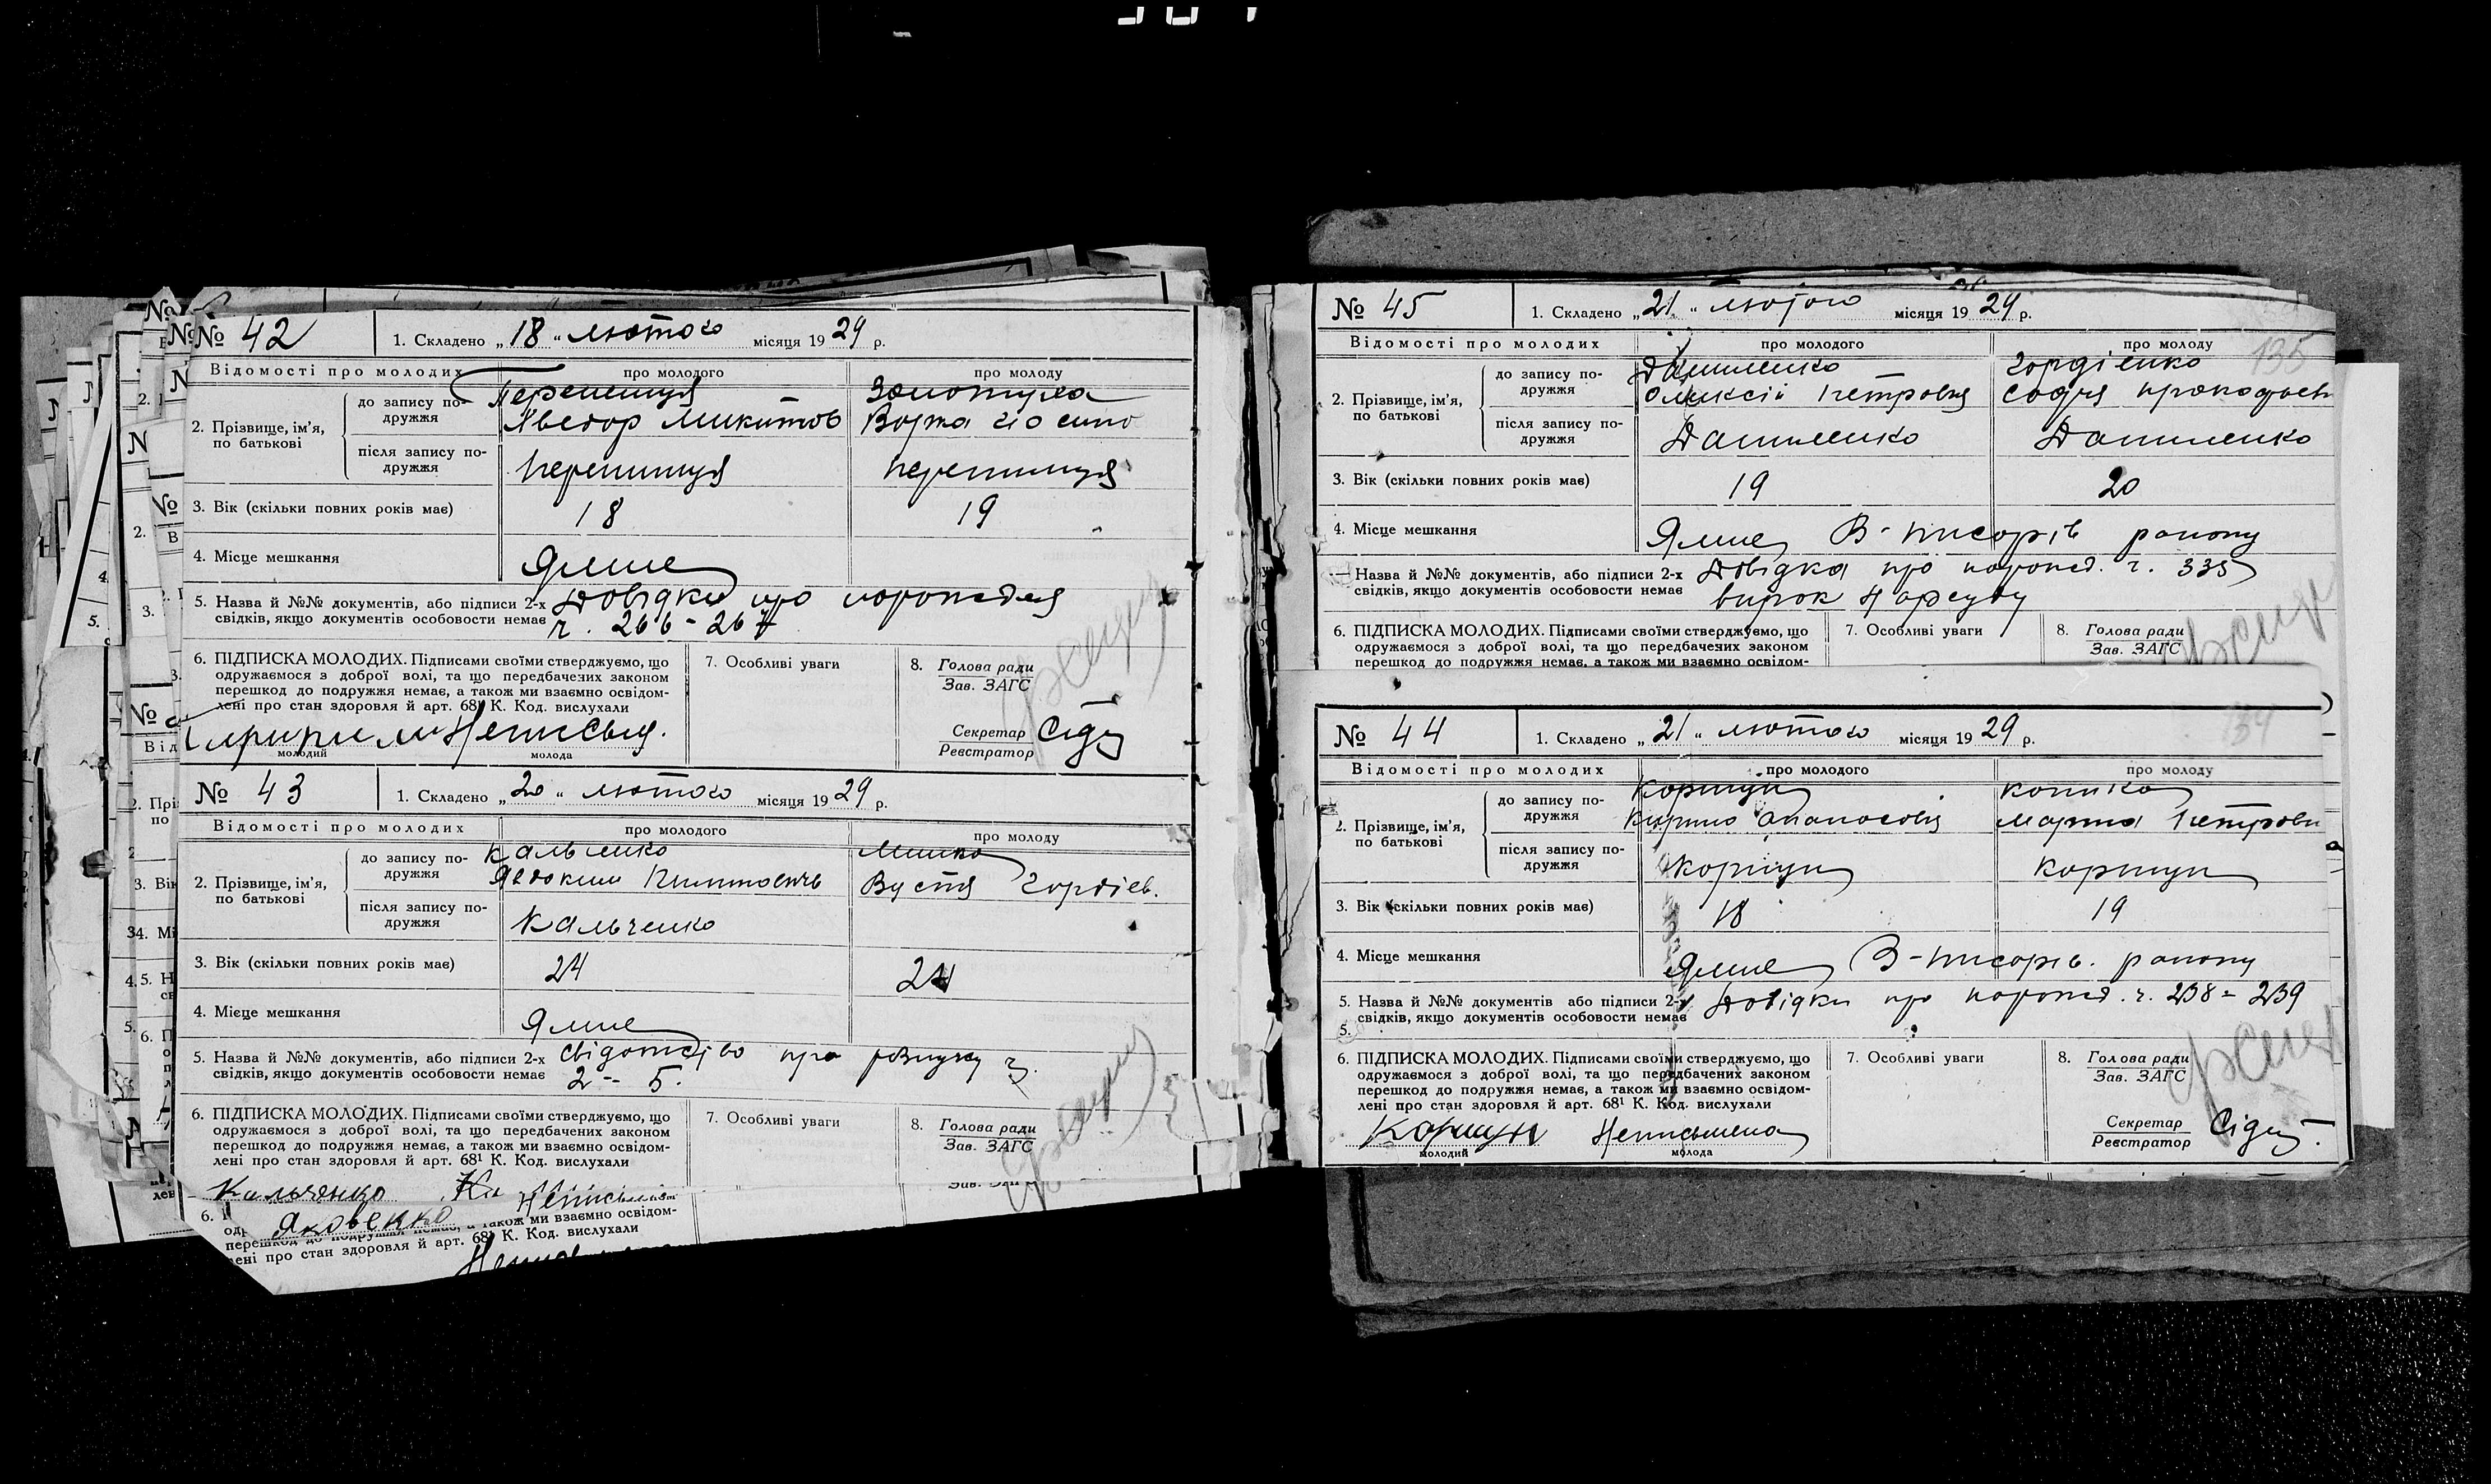 № 42
1. Складено „18“ лютого місяця 1929 р.
Відомості про молодих про молодого про молоду
2. Прізвище, ім'я, по батькові
до запису по-дружжя
Микитов
після запису по-дружжя
3. Вік (скільки повних років має) 18 19
4. Місце мешкання Ямне
5. Назва й №№ документів, або підписи 2-х Довідки про
свідків, якщо документів особовости немає ч. 266-267
6. ПІДПИСКА МОЛОДИХ. Підписами своїми стверджуємо, що
одружаємося з доброї волі, та що передбачених законом
перешкод до подружжя немає, а також ми взаємно освідом-
лені про стан здоровля й арт. 68¹ К. Код. вислухали
молодий молода
7. Особливі уваги
8. Голова ради
Зав. ЗАГС
Секретар
Реєстратор
№ 43
1. Складено „20“ лютого місяця 1929 р.
Відомості про молодих про молодого про молоду
2. Прізвище, ім'я, по батькові
до запису по-дружжя Кальченко Мишко
Явдоким Вустя Гордієв.
після запису по-дружжя Кальченко
3. Вік (скільки повних років має) 24 24
4. Місце мешкання Ямне
5. Назва й №№ документів, або підписи 2-х свідотство про розлуку ч.
свідків, якщо документів особовости немає 2-5.
6. ПІДПИСКА МОЛОДИХ. Підписами своїми стверджуємо, що
одружаємося з доброї волі, та що передбачених законом
перешкод до подружжя немає, а також ми взаємно освідом-
лені про стан здоровля й арт. 68¹ К. Код. вислухали
Кальченко
7. Особливі уваги
8. Голова ради
Зав. ЗАГС
Яковенко
також ми взаємно освідом-
ені про стан здоровля й арт. 68¹ К. Код. вислухали
№ 45
135
1. Складено „21“ лютого місяця 1929 р.
Відомості про молодих про молодого про молоду
2. Прізвище, ім'я, по батькові
до запису по-дружжя Даниленко Гордієнко
Олексій Петрович Софія
після запису по-дружжя Даниленко Даниленко
3. Вік (скільки повних років має) 19 20
4. Місце мешкання Ямне В-Писарів району
Назва й №№ документів, або підписи 2-х Довідка про пород. ч. 335
свідків, якщо документів особовости немає вирок Нарсуду
6. ПІДПИСКА МОЛОДИХ. Підписами своїми стверджуємо, що
одружаємося з доброї волі, та що передбачених законом
перешкод до подружжя немає, а також ми взаємно освідом-
7. Особливі уваги
8. Голова ради
Зав. ЗАГС
№ 44
134
1. Складено „21“ лютого місяця 1929 р.
Відомості про молодих про молодого про молоду
2. Прізвище, ім'я, по батькові
до запису по-дружжя Коршун
після запису по-дружжя Коршун Коршун
3. Вік (скільки повних років має) 18 19
4. Місце мешкання Ямне В-Писарів. району
5. Назва й №№ документів або підписи 2-х Довідки про пород. ч. 238-239
свідків, якщо документів особовости немає
6. ПІДПИСКА МОЛОДИХ. Підписами своїми стверджуємо, що
одружаємося з доброї волі, та що передбачених законом
перешкод до подружжя немає, а також ми взаємно освідом-
лені про стан здоровля й арт. 68¹ К. Код. вислухали
Коршун Неписьмена
молодий молода
7. Особливі уваги
8. Голова ради
Зав. ЗАГС
Секретар
Реєстратор